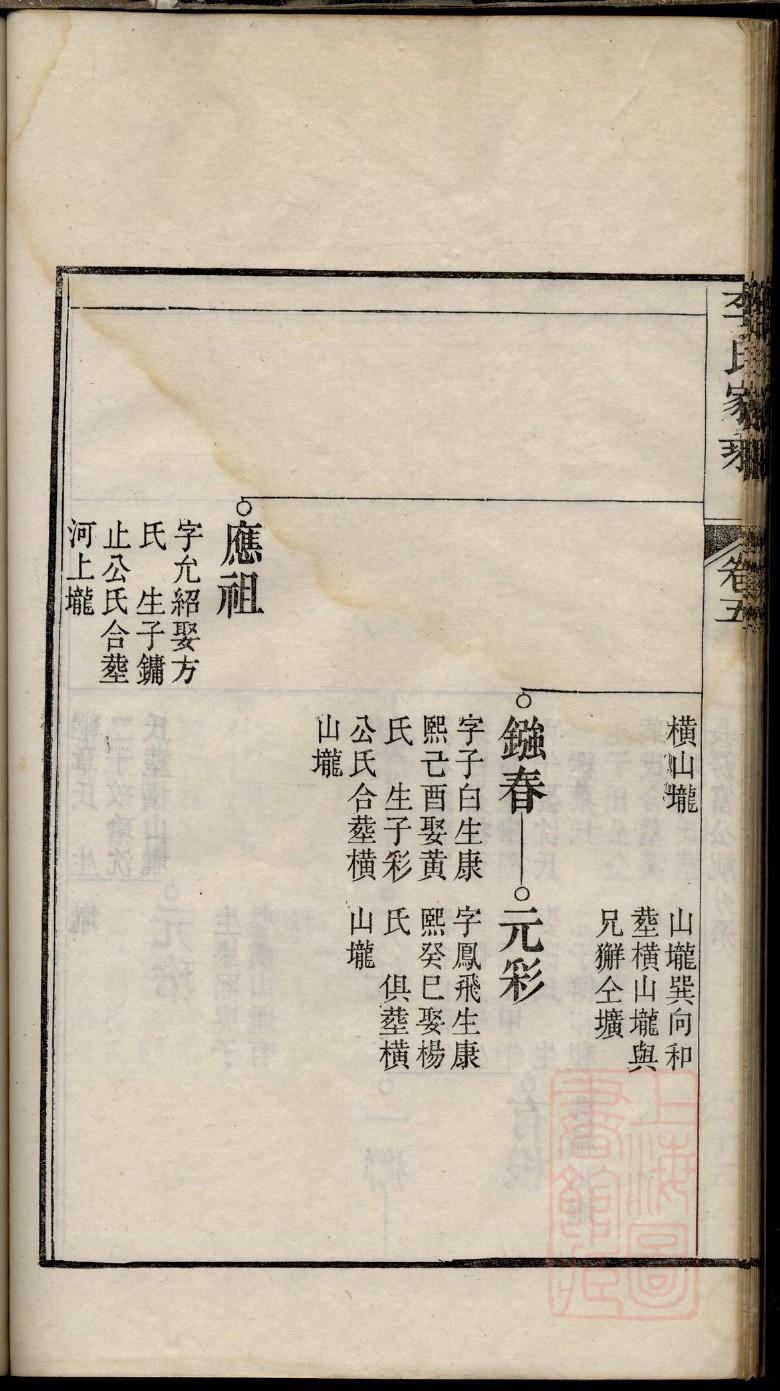 李氏家乘
卷五
橫山壠
山壠巽向和
塟橫山壠與
兄獬仝壙
鏹春
字子白生康
熙己酉娶黃
氏　生子彩
公氏合塟橫
山壠
元彩
字鳳飛生康
熙癸巳娶楊
氏　俱塟橫
山壠
應祖
字允紹娶方
氏　生子鏞
止公氏合塟
河上壠
上海圖
書館藏